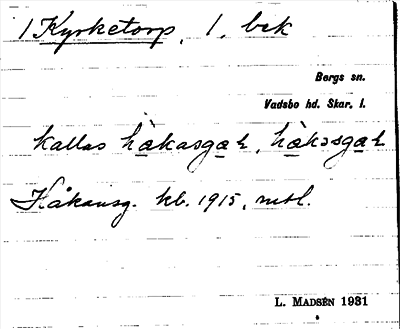 1 Kyrketorp, 1. bek
Bergs sn.
Vadsbo hd. Skar. l.
kallas hàkasgaꞎ, hàkəsgaꞎ
Håkansg. kb. 1915, mtl.
L. MADSÉN 1931